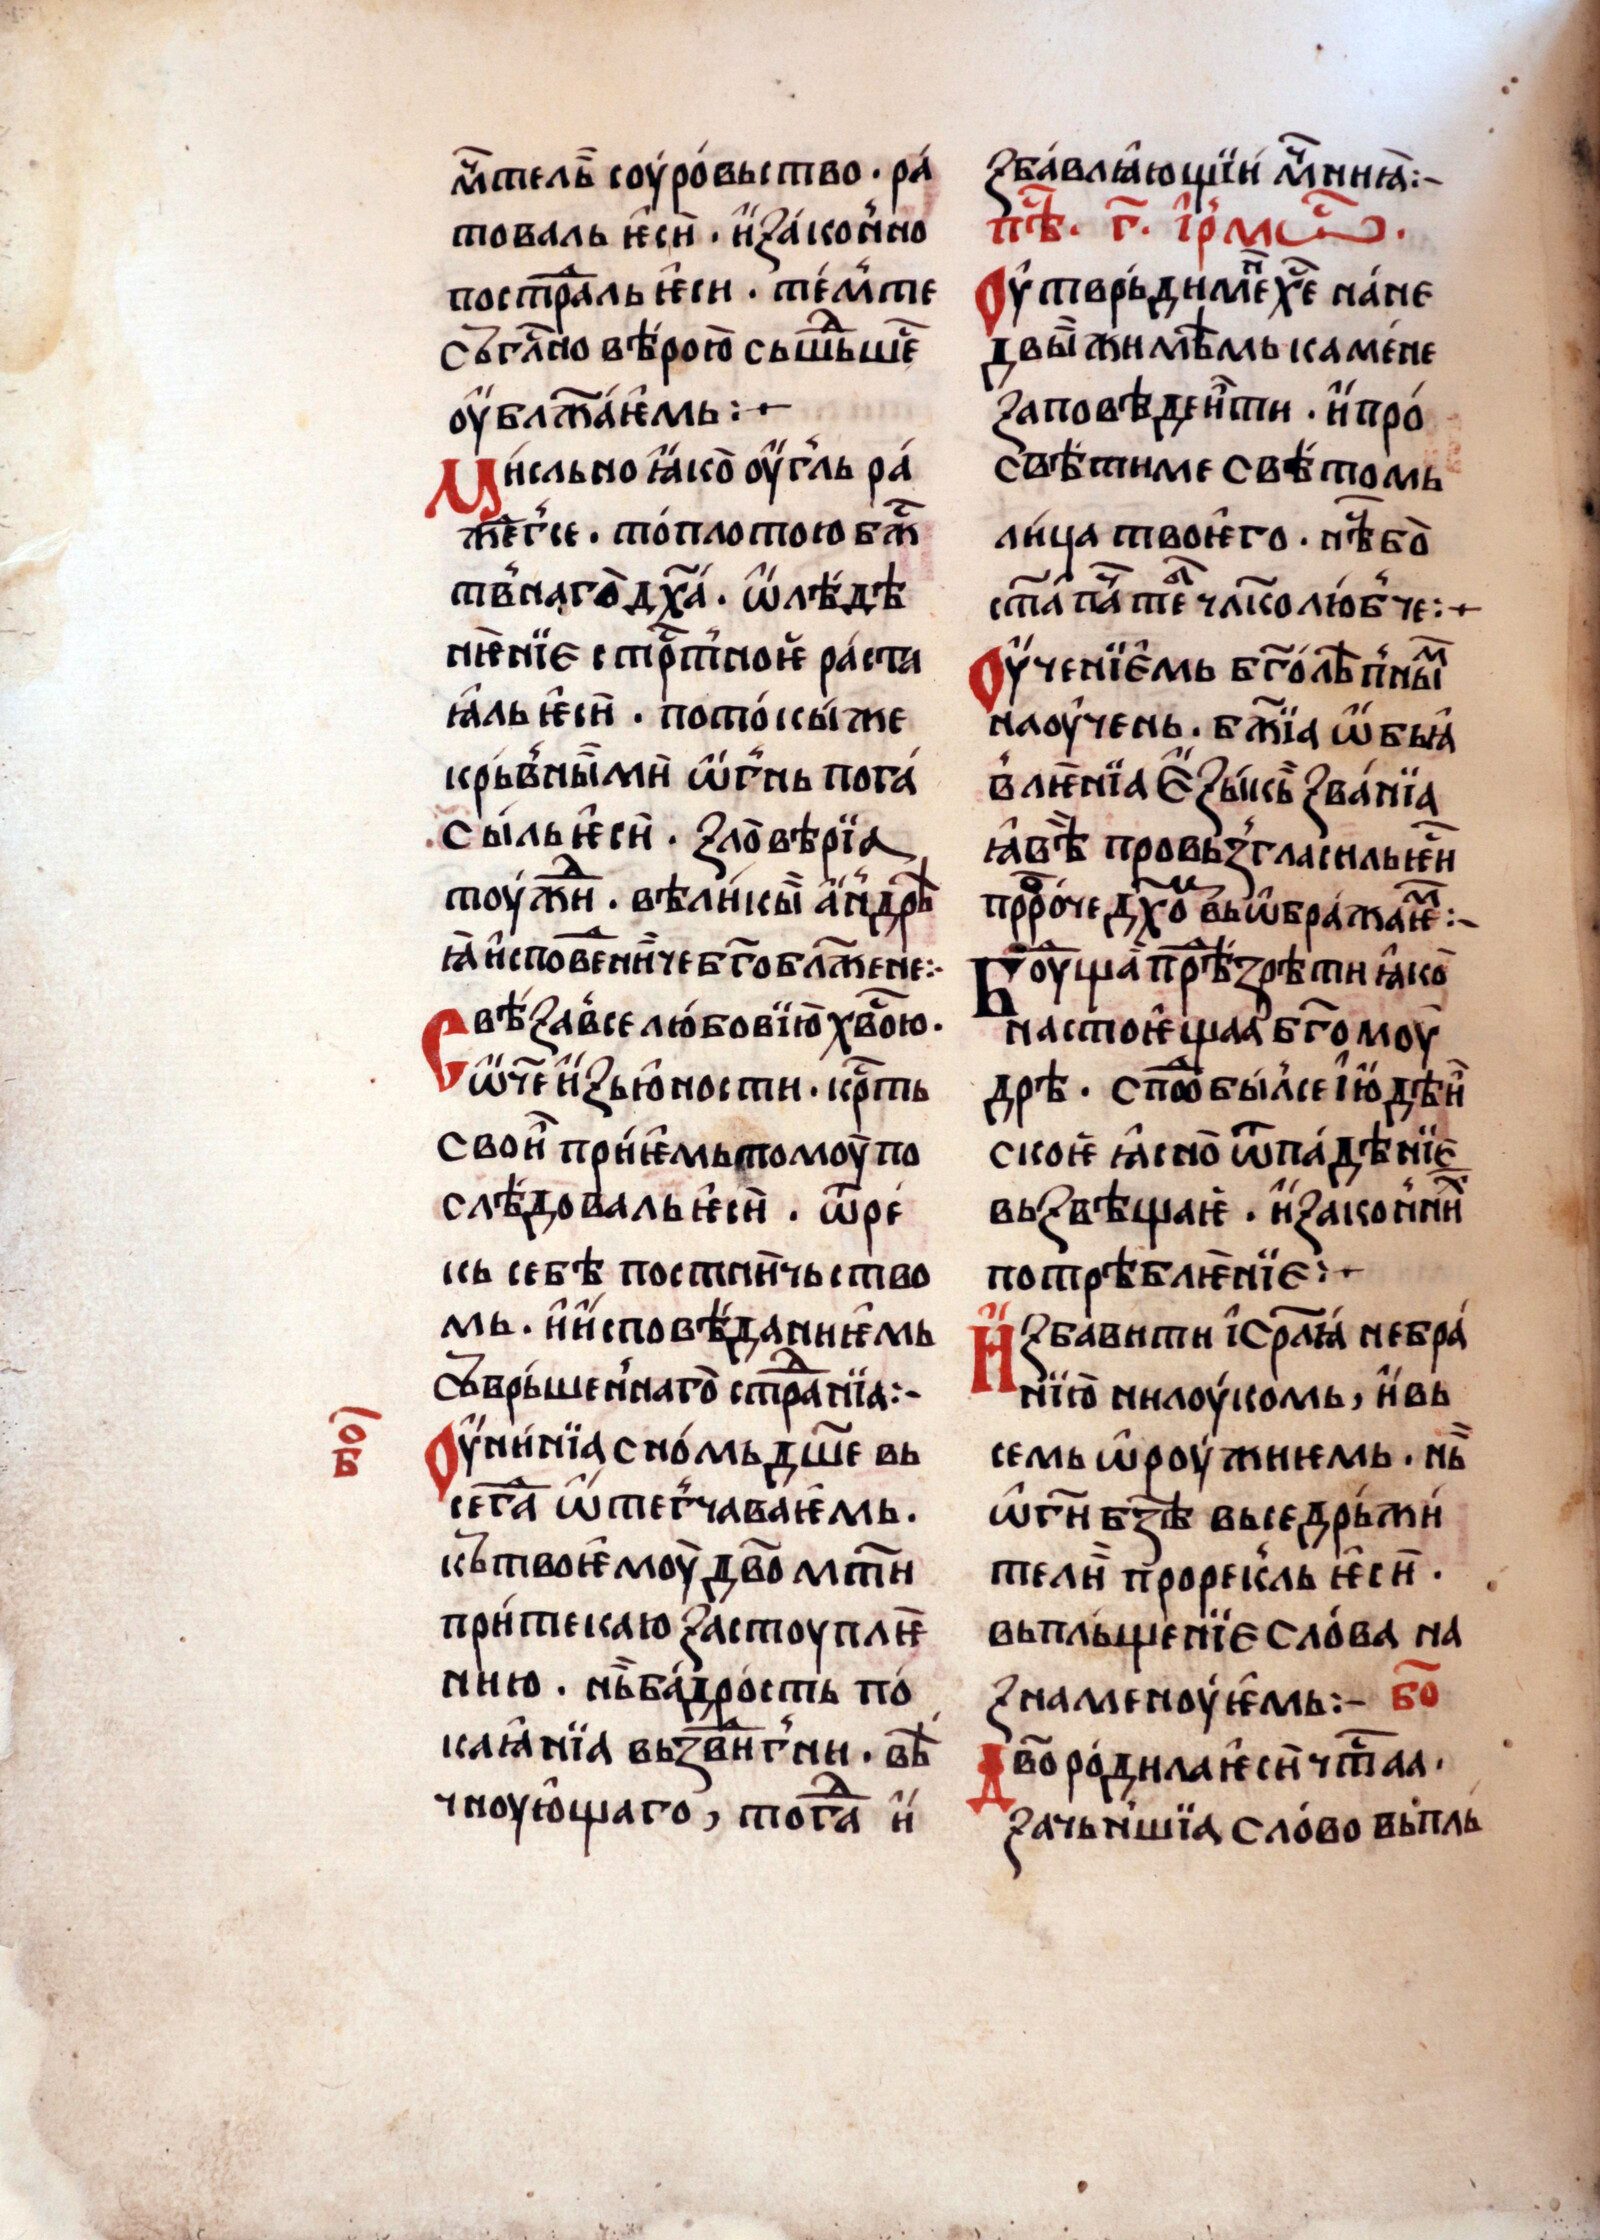 мⷱ҇тель̏ соурѡ́вьство · ра́
товаль ѥ҆сѝ · и҆҆зако́н̾но
постра́ⷣль ѥ҆си · тѣ́м̾те
съгла҇но вѣ́рою̀ сьшⷣьше҇
оу҆҆блж҇а́ѥ҆мь :~
Ци́сльно ꙗ҆҆кѡ̀ оу҆҆г̾ль ра́
жег̾се · то́плотою бж҇
тв̾наго̀ дх҃а́ · ѡ҆҆лѣ́дѣ
нѥ́нїє стрⷭ҇т̾ноѥ ра́ста
ꙗ҆ль ѥ҆сѝ · пото́кы́же
крь́в̾ны̏мѝ ѡ҆҆г̾нь пога́
сы́ль ѥ҆сѝ · ꙁло̀вѣ́рїа
тоу́жⷣи · вѣли́кы̏ а҆҆н̾дрѣ́
ꙗ҆̀ и҆споведⷣни̏че бг҃обла҇жене :~
Свѣ́ꙁав̾се лю́бовїю̀ хв҃ою ·
ѡ҆҆ч҃е и҆҆ꙁью҆ности · крⷭ҇ть
свои҆̀ при́ѥ҆мь томоу̀ по
слѣ́довать ѥ҆сѝ · ѿре́
кь себѣ̀ постни̏чьство
мь · и҆и҆҆сповѣ́даниѥ҆мь
съврь́шен̾наго̀ стрⷣа́нїа :~
ѻб
Оу҆҆ни́нїа сно́мь дш҃е вь
сегⷣа ѡ҆҆тег̾чаваѥ҆мь ·
кътвоѥ҆моу̀ дв҃о мⷭ҇ти
при́текаю ꙁастоуплѥ҆
нию · нь̏ ба́дрость по́
каꙗ҆́нїа вьꙁдⷣвиг̾ни · вѣ́
чноую҆щаго , тогⷣа и҆҆
ꙁба́влꙗ́ющїи́ мⷱ҇ниꙗ̀ :~
пѣ҇ · г҃ · і҆рмѡ҇ ·
Оу҆҆тврь́димⷩ҇е х҃е на́не
двы̏жимѣ̀мь ка́мене
ꙁаповѣ́де́и҆ти · и҆҆про́
свѣтиме свѣ́томь
ли́ца твоѥ҆го · нѣ҇ бо̀
ст҃а́ па́ⷱ҇ теⷧ҇ чл҃колю́б̾че :~
Оу҆҆ченїе҆мь бг҃о́лѣ́п̾ныⷨ
наоу́чень · бж҃їа ѡ҆҆бьꙗ҆
в̾лѥ́нїа е҆҆ꙁы́кь̏ ꙁва́нїа
ꙗ҆вѣ̏ провьꙁ̾гласиль ѥ҇и
прⷪ҇ро́че дх҃оⷨ вьѡ҆браж́аѥⷨ :~
Боу́дꙋщаⷶ прⷣѣ́ꙁрѣти ꙗ҆кѡ̀
настоѥ҆щаа бг҃омоу̀
дрѣ · спⷪ҇добы́л̾се і҆ю҆҆дѣи҆̀
скоѥ ꙗ҆сно̀ ѿпа́дѣнїє
вьꙁвѣ́щаѥ̀ · и҆҆ꙁако́н̾ниⷯ
потрѣблѥ́нїє :~
И҆҆ꙁбавити і҆срлꙗ҃ небра́
нїю̀ нилоу́комь , и҆҆вь
семь ѡ҆роу́жиемь · нь̏
ѡ҆г҃и бꙁ҃ѣ вьседрьжи́
тели̏ прорек̾ль ѥ҆сѝ ·
вьпль́щенїє сло́ва на
ꙁнаменоу́ѥ҆мь :~ бо҃
Дв҃о ро́дила ѥ҆сѝ чⷭ҇таа ·
ꙁачьн̾шїа сло́во вь́пль́